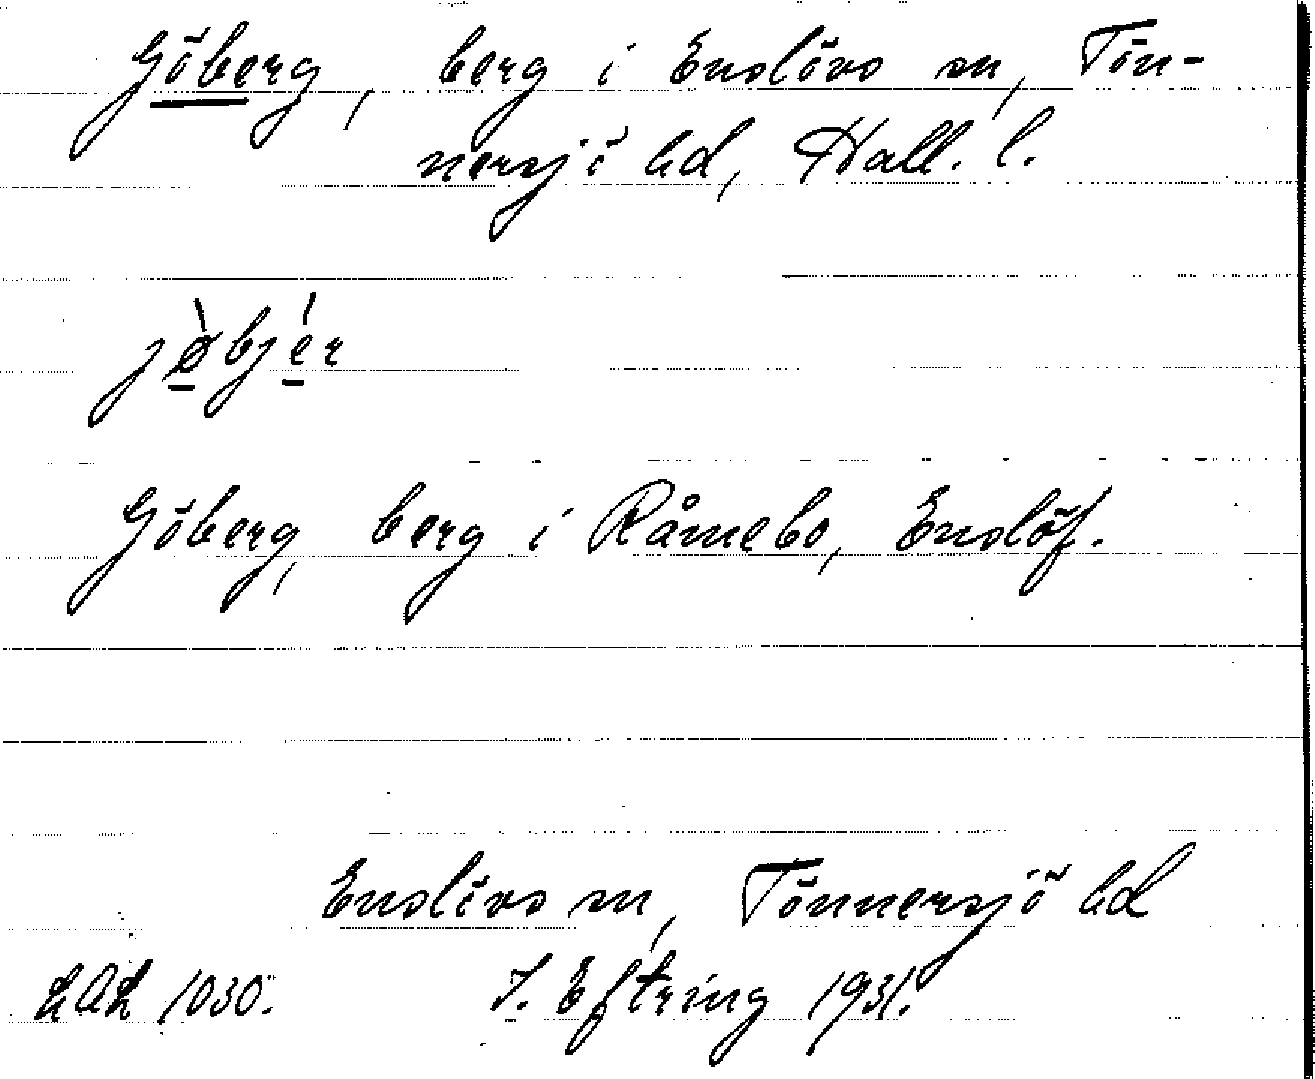 Göberg, berg i Enslövs sn, Tön-
nersjö hd, Hall. l.
jø̀bjér
Göberg, berg i Råmebo, Enslöf.
Enslövs sn, Tönnersjö hd
LAL 1030.
J. Eftring 1931.